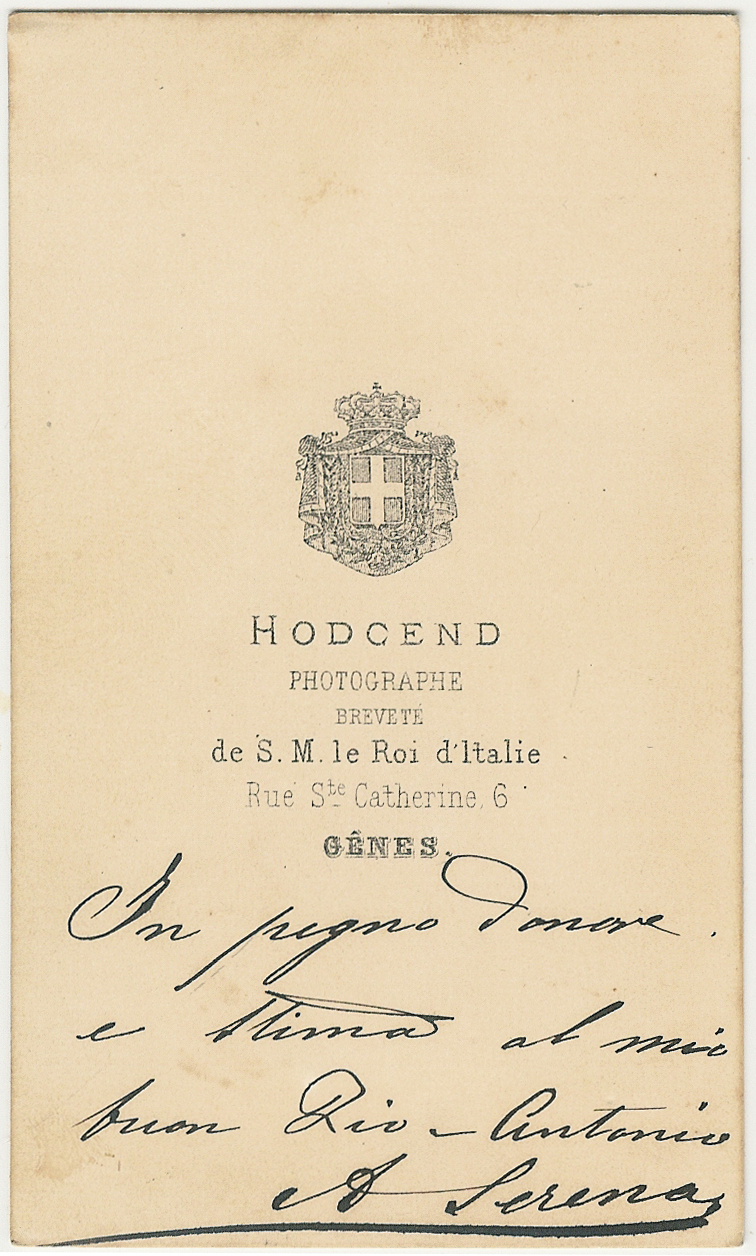 HODCEND
PHOTOGRAPHE
BREVETÉ
de S. M. le Roi d'Italie
Rue Ste Catherine, 6
GÊNES.
In pegno d'onore
e stima al mio
buon Zio - Antonio
A Serena